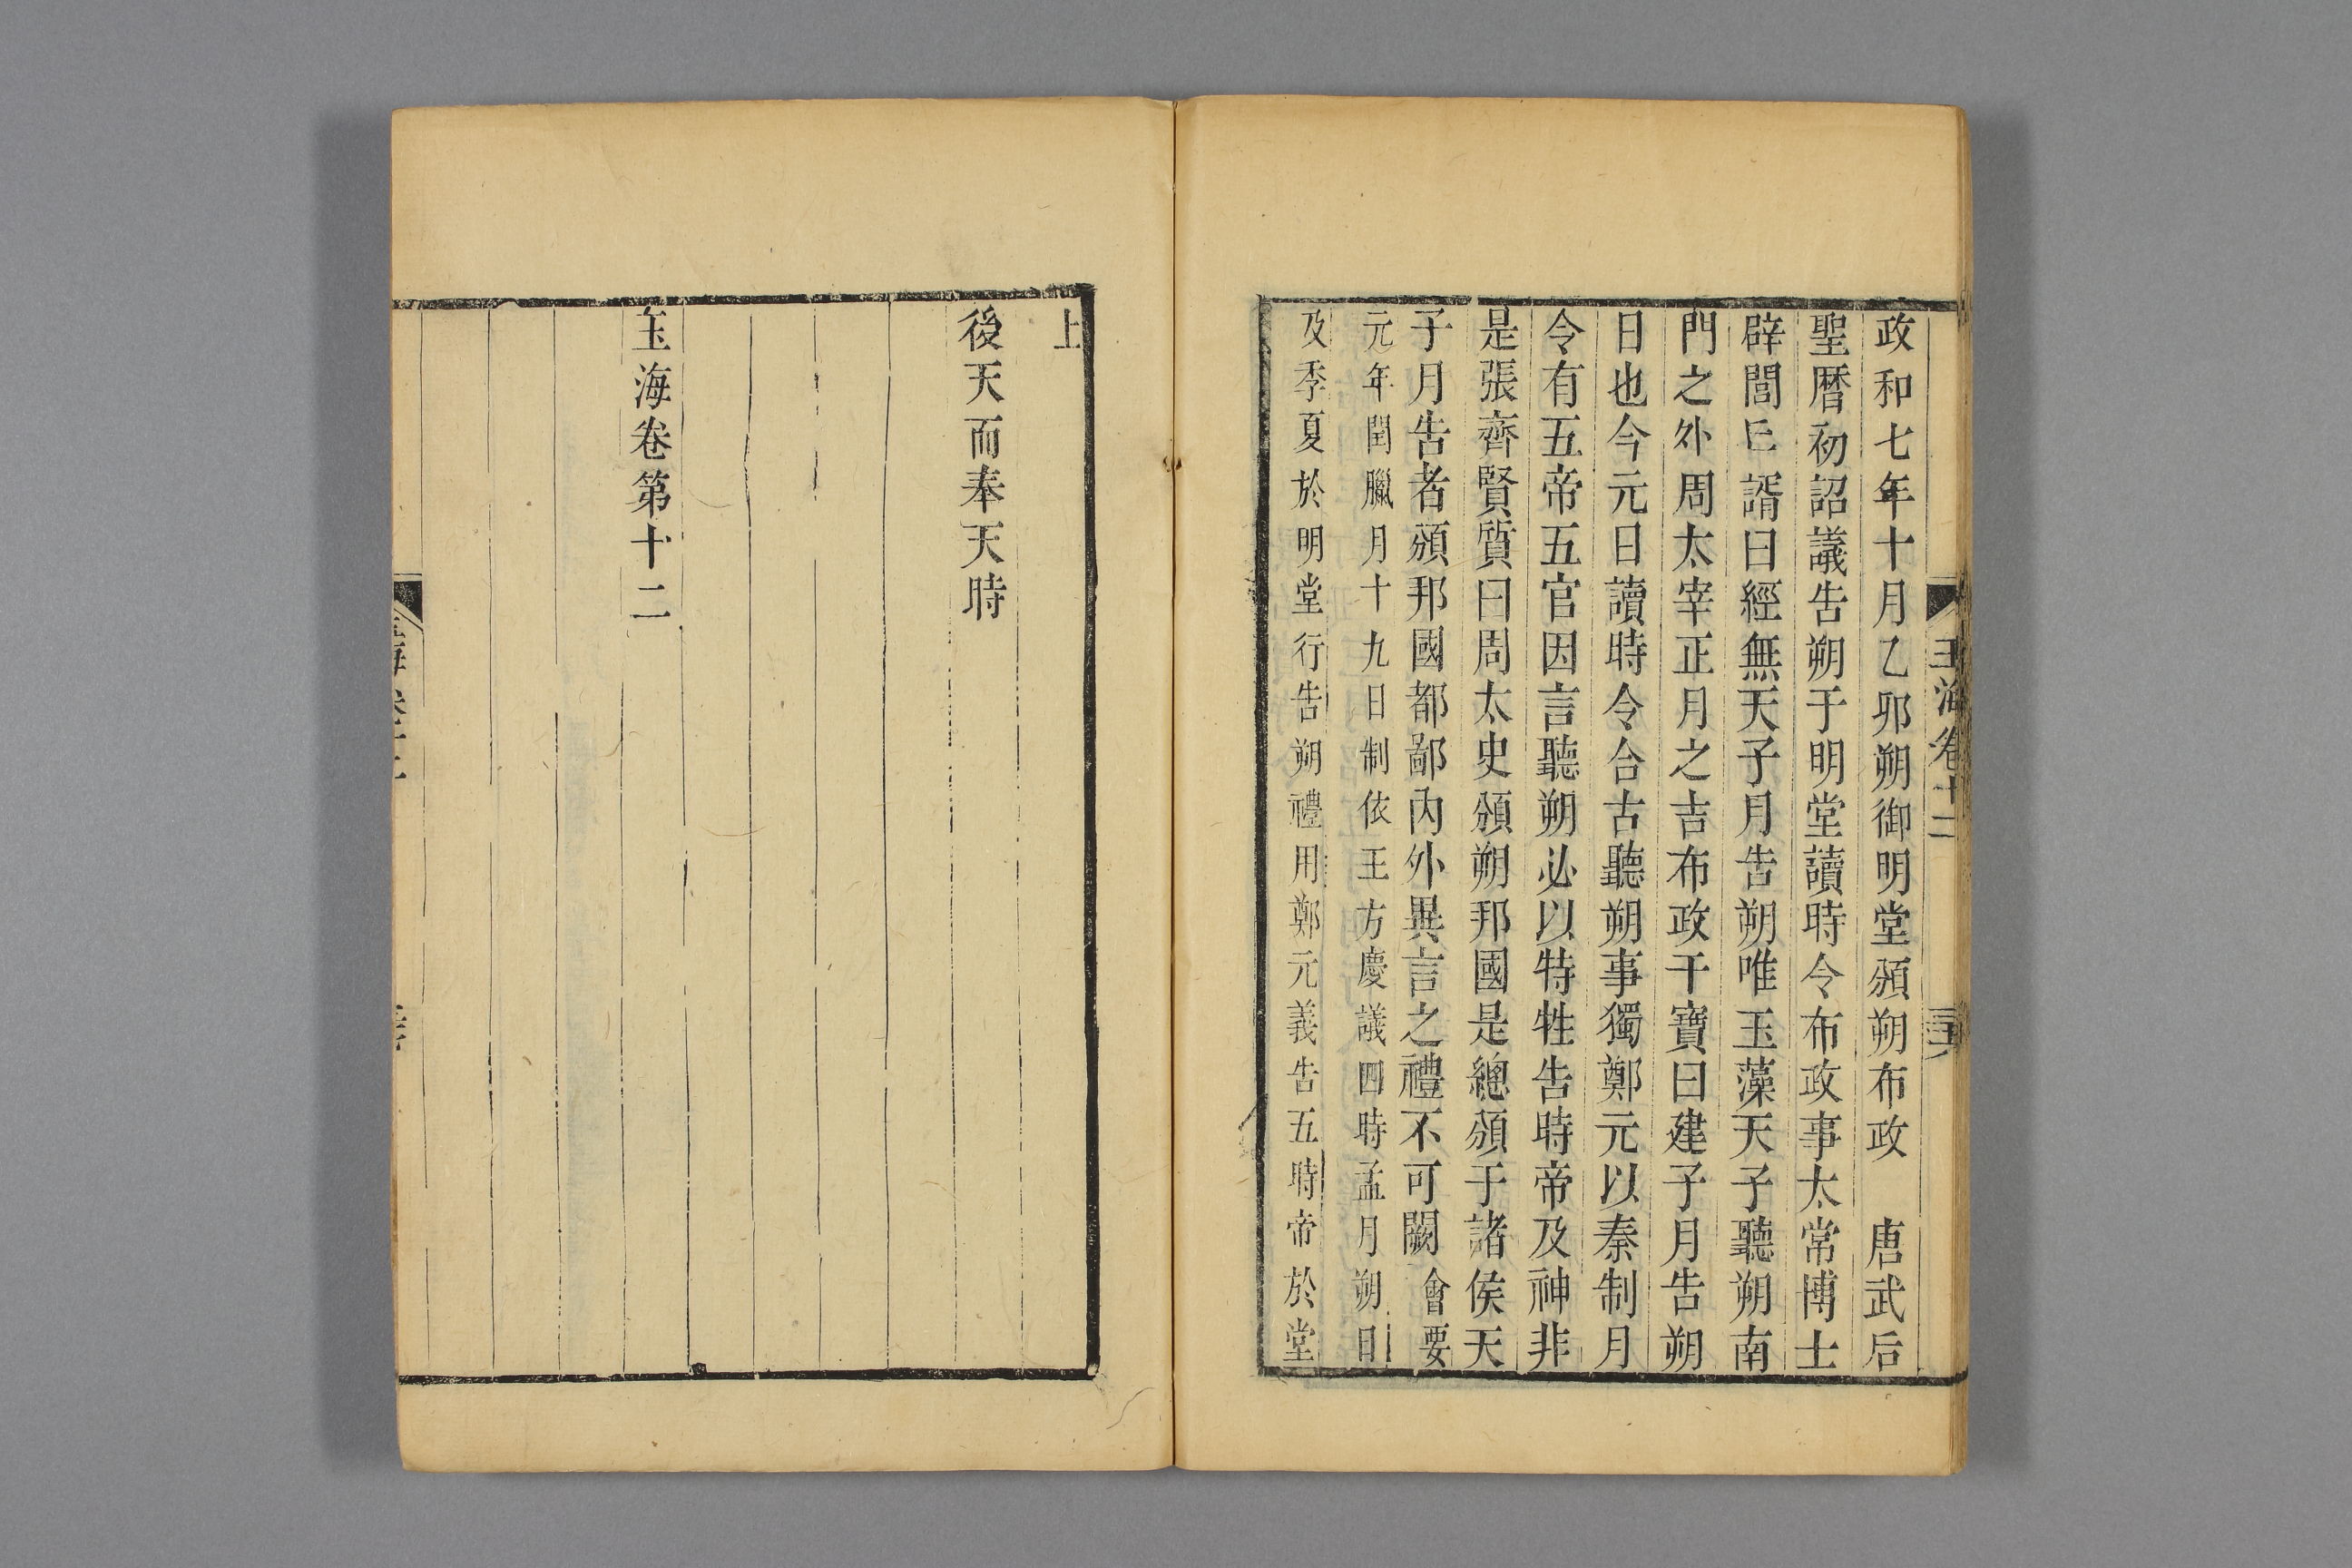 玉海卷十二
政和七年十月乙卯朔御明堂頒朔布政　唐武后
聖曆初詔議告朔于明堂讀時令布政事太常博士
辟閭仁諝曰經無天子月告朔唯玉藻天子聽朔南
門之外周太宰正月之吉布政干寶曰建子月告朔
日也今元日讀時令合古聽朔事獨鄭元以秦制月
令有五帝五官因言聽朔必以特牲告時帝及神非
是張齊賢質曰周太史頒朔邦國是總頒于諸侯天
子月告者頒邦國都鄙內外異言之禮不可闕會要
元年閏臘月十九日制依王方慶議四時孟月朔日
及季夏於明堂行告朔禮用鄭元義告五時帝於堂
上
後天而奉天時
玉海卷第十二